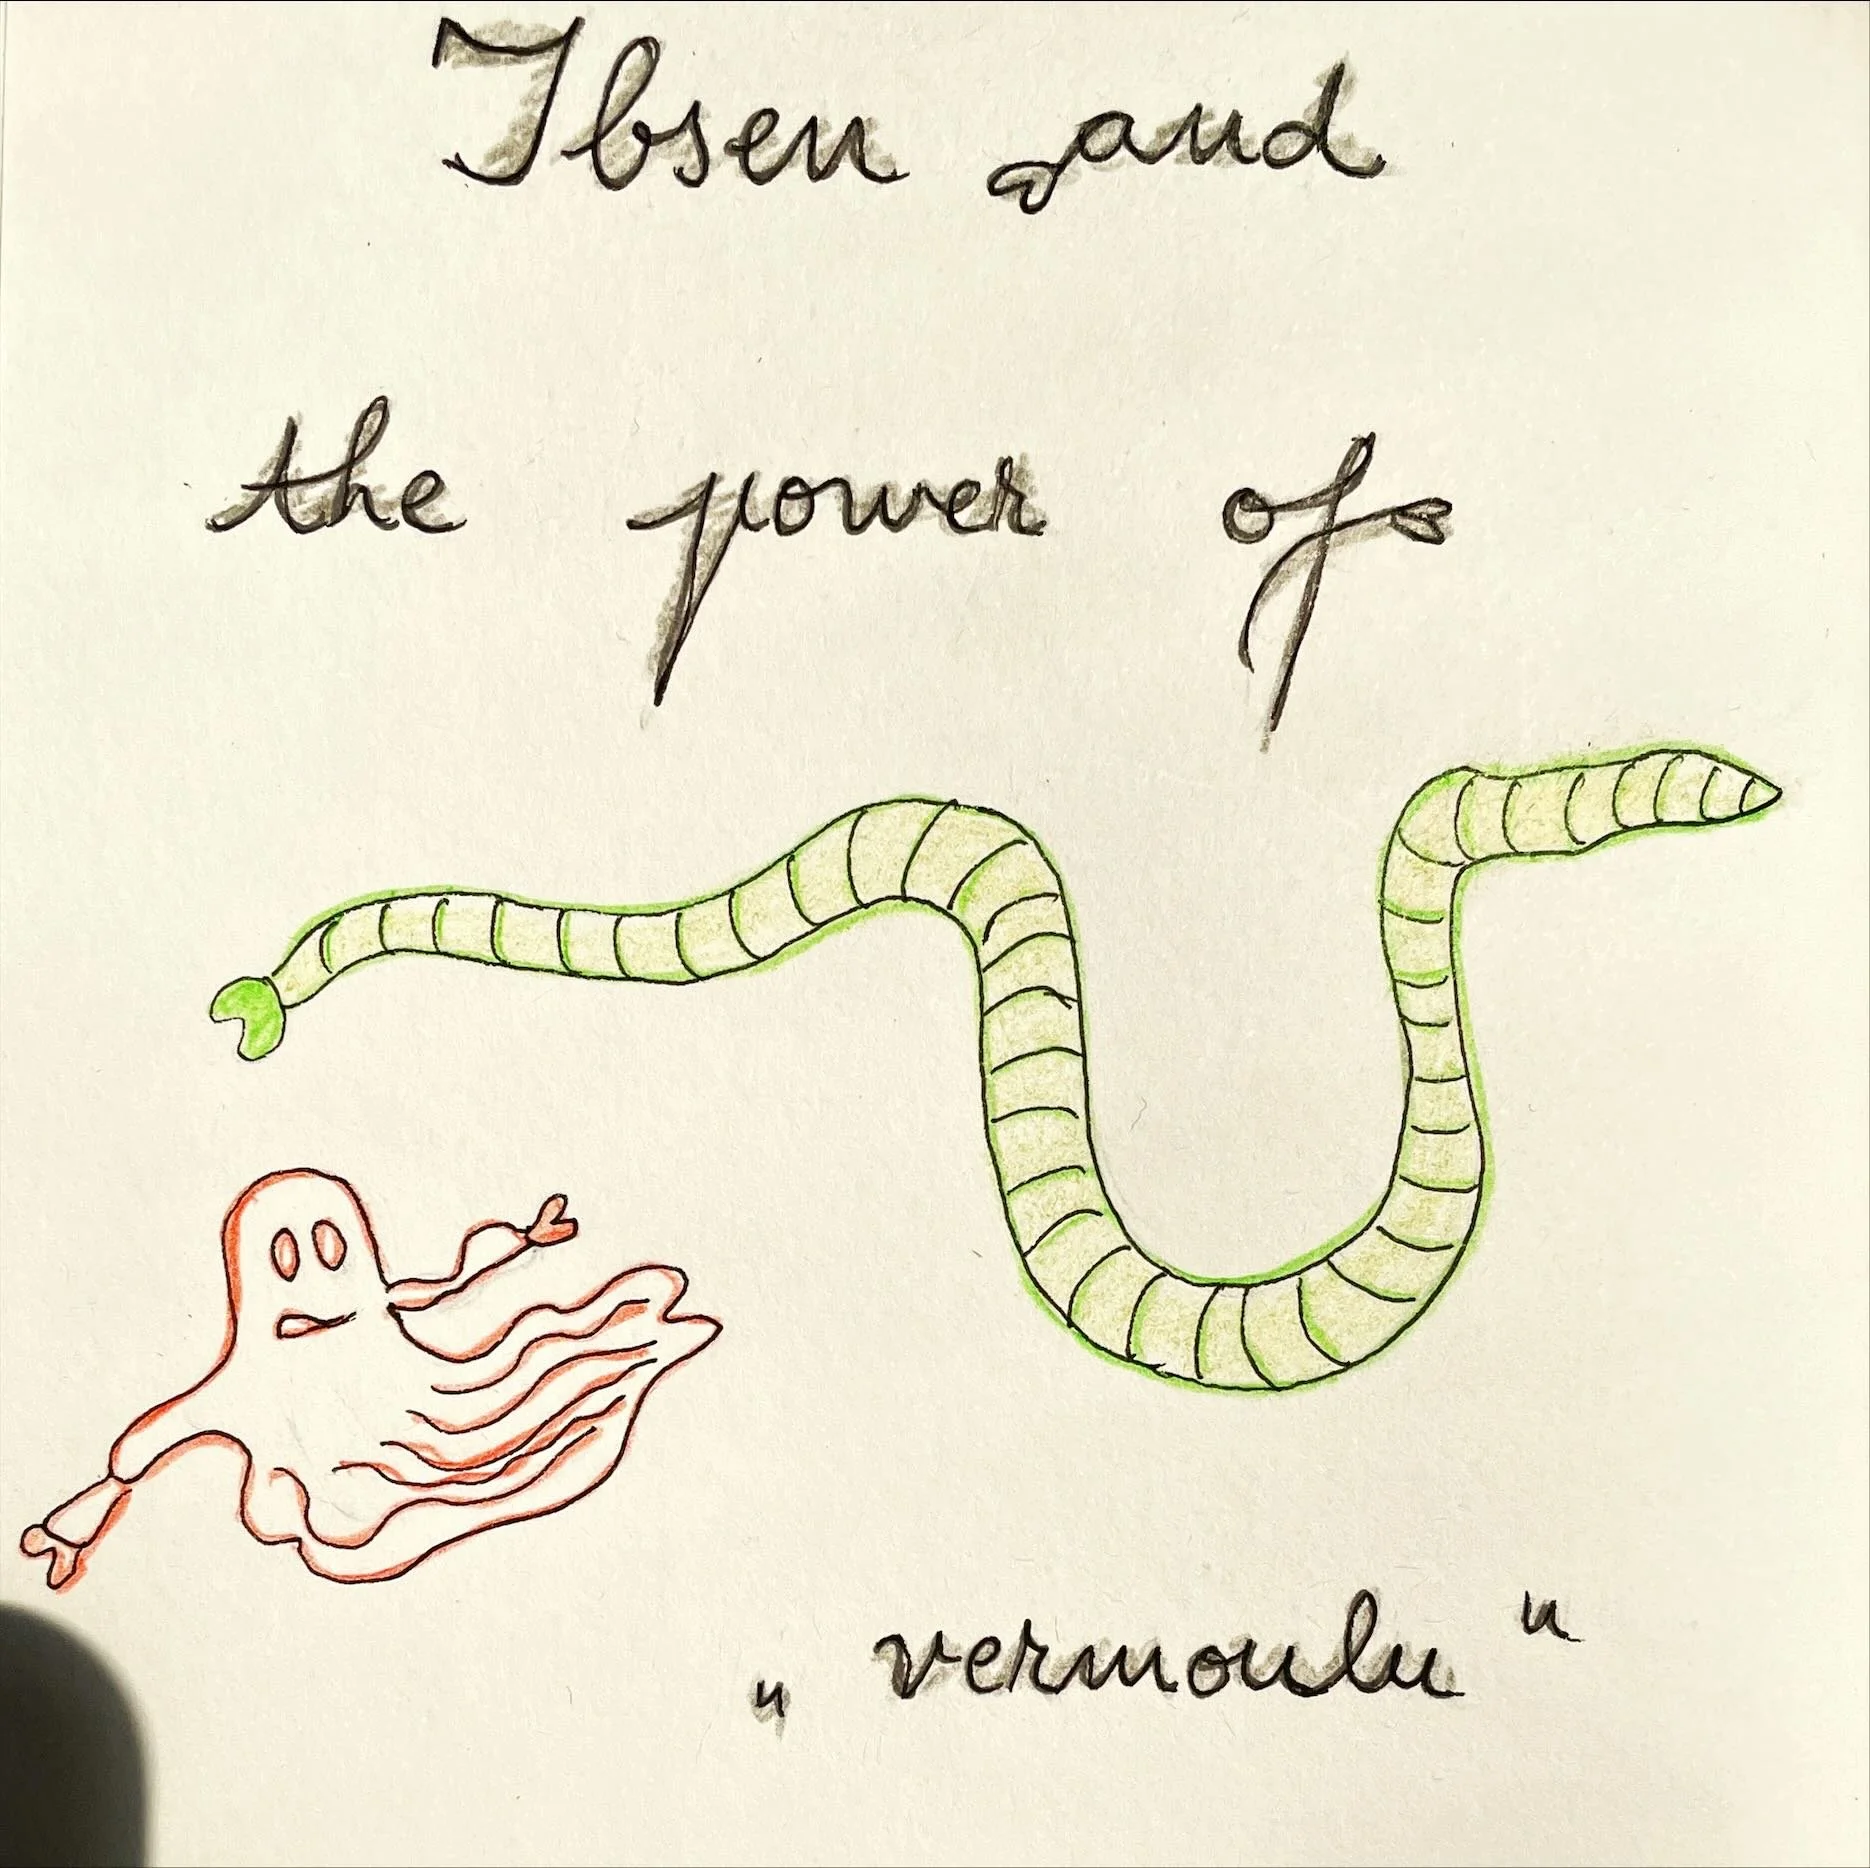 Ibsen and
the power of
„ vermoulu "